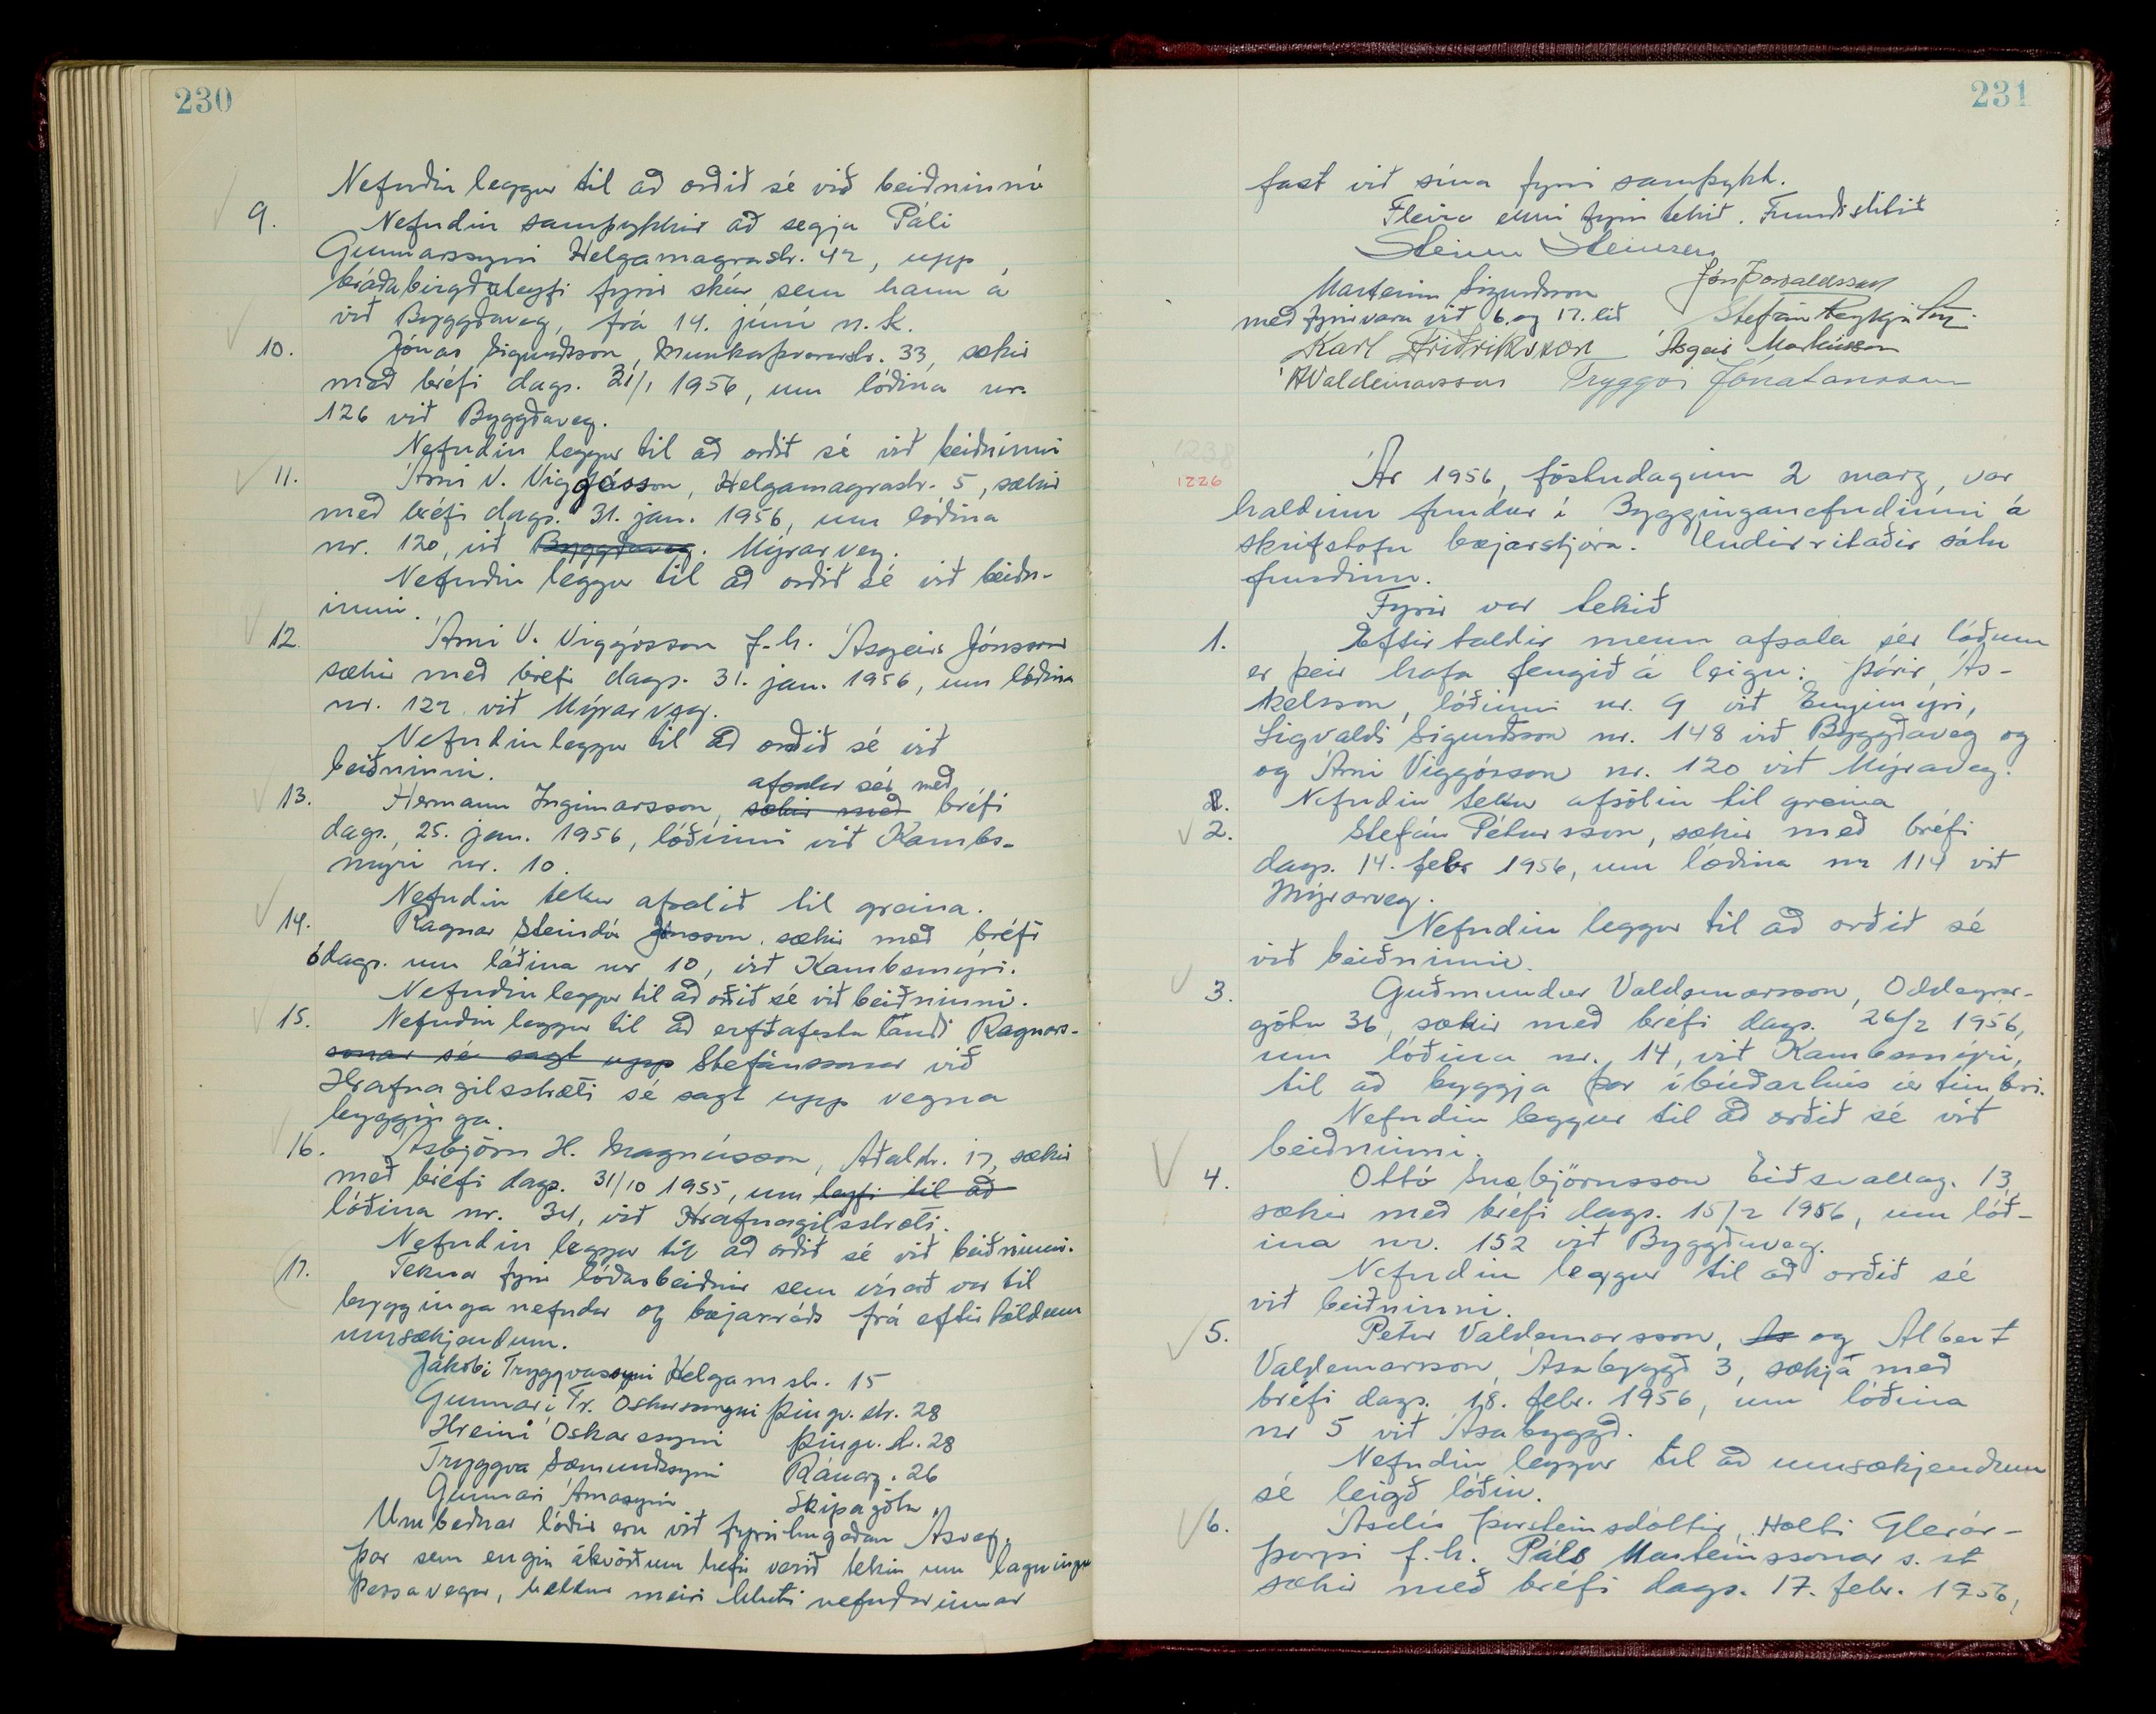 230
Nefndin leggur til að orðið sé við beiðninni
9. Nefndin samþykkir að segja Páli
Gunnarssyni Helgamagrastr. 42, upp
bráðabirgðaleyfi fyrir skúr sem hann á
við Byggðaveg, frá 14. júní n.k.
10. Jónas Sigurðsson, Munkaþverárstr. 33, sækir
með bréfi dags. 31/1 1956, um lóðina nr.
126 við Byggðaveg.
Nefndin leggur til að orðið sé við beiðninni
11. Árni V. Viggósson, Helgamagrastr. 5, sækir
með bréfi dags. 31. jan. 1956, um lóðina
nr. 120, við Byggðaveg. Mýrarveg.
Nefndin leggur til að orðið sé við beiðn-
inni.
12. Árni V. Viggósson f.h. Ásgeirs Jónssonar
sækir með bréfi dags. 31. jan. 1956, um lóðina
nr. 122 við Mýrarveg.
Nefndin leggur til að orðið sé við
beiðninni.
afsalar sér með
13. Hermann Ingimarsson, sækir með bréfi
dags. 25. jan. 1956, lóðinni við Kambs-
mýri nr. 10.
Nefndin tekur afsalið til greina.
14. Ragnar Steindór Jónsson, sækir með bréfi
ódags. um lóðina nr 10, við Kambsmýri.
Nefndin leggur til að orðið sé við beiðninni.
15. Nefndin leggur til að erfðafestulandi Ragnars-
sonar sé sagt upp Stefánssonar við
Hrafnagilsstræti sé sagt upp vegna
bygginga.
16. Ásbjörn H. Magnússon, Aðalstr. 17, sækir
með bréfi dags. 31/10 1955, um leyfi til að
lóðina nr. 34, við Hrafnagilsstræti.
Nefndin leggur til að orðið sé við beiðninni.
17. Teknar fyrir lóðarbeiðnir sem vísað var til
bygginganefndar og bæjarráðs frá eftirtöldum
umsækjendum.
Jakobi Tryggvasyni Helgam str. 15
Gunnari Tr. Óskarssyni Þingv. str. 28
Hreini Óskarssyni Þingv. str. 28
Tryggva Sæmundssyni Ránarg. 26
Gunnari Árnasyni Skipagötu
Umbeðnar lóðir eru við fyrirhugaðan Ásveg.
Þar sem engin ákvörðun hefir verið tekin um lagningu
þessa vegar, heldur meiri hluti nefndarinnar
231
fast við sína fyrri samþykkt.
Fleira ekki fyrir tekið. Fundi slitið
Steinn Steinsen
Marteinn Sigurðsson Jón Þorvaldsson
með fyrirvara við 6. og 17. lið Stefán Reykjalín
Karl Friðriksson Ásgeir Markússon
Á Valdemarsson Tryggvi Jónatansson
1238
1226
Ár 1956, föstudaginn 2 marz, var
haldinn fundur í Bygginganefndinni á
skrifstofu bæjarstjóra. Undirritaðir sátu
fundinn.
Fyrir var tekið
1. Eftirtaldir menn afsala sér lóðum
er þeir hafa fengið á leigu: Þórir Ás-
kelsson, lóðinni nr. 9 við Engimýri,
Sigvaldi Sigurðsson nr. 148 við Byggðaveg og
og Árni Viggósson nr. 120 við Mýraveg.
2. Nefndin tekur afsölin til greina
2. Stefán Pétursson, sækir með bréfi
dags. 14. febr 1956, um lóðina nr 114 við
Mýrarveg.
Nefndin leggur til að orðið sé
við beiðninni.
3. Guðmundur Valdemarsson, Oddagrar-
götu 36, sækir með bréfi dags. 26/2 1956,
um lóðina nr. 14, við Kambsmýri,
til að byggja þar íbúðarhús úr timbri.
Nefndin leggur til að orðið sé við
beiðninni.
4. Ottó Snæbjörnsson Eiðsvallag. 13,
sækir með bréfi dags. 15/2 1956, um lóð-
ina nr. 152 við Byggðaveg.
Nefndin leggur til að orðið sé
við beiðninni.
5. Petur Valdemarsson, Ás og Albert
Valdemarsson, Ásabyggð 3, sækja með
bréfi dags. 18. febr. 1956, um lóðina
nr 5 við Ásabyggð.
Nefndin leggur til að umsækjendum
sé leigð lóðin.
6. Ásdís Þorsteinsdóttir, Holti Glerár-
þorpi f.h. Páls Marteinssonar s. st
sækir með bréfi dags. 17. febr. 1956,